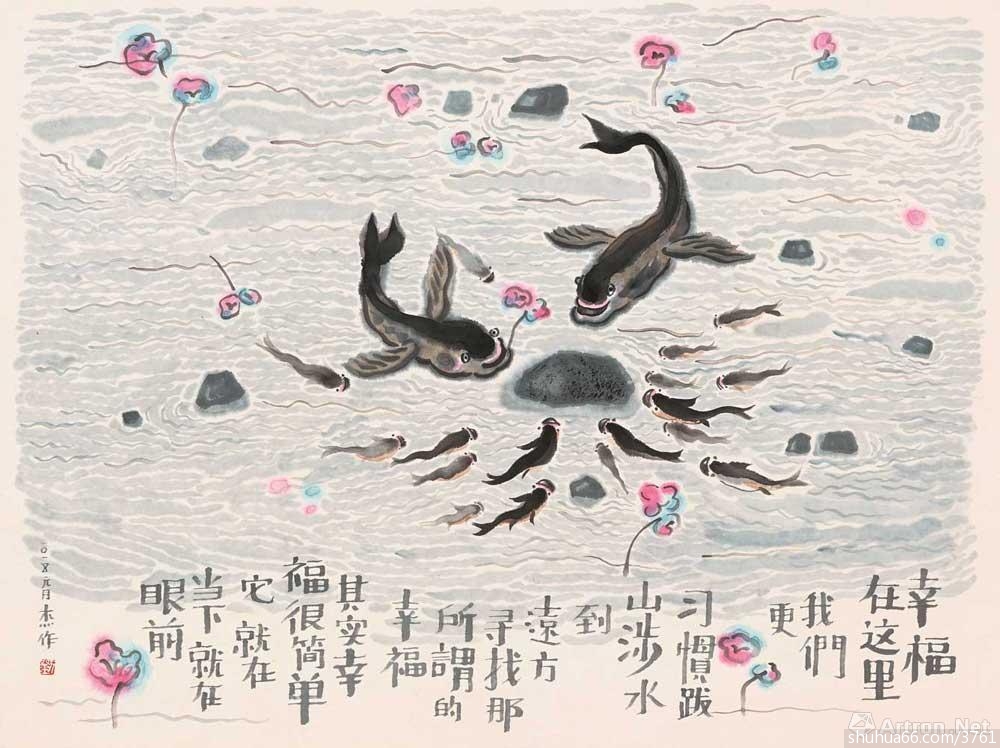 幸福
在这里
我們
更
习慣跋
山涉水
到
遠方
寻找那
所謂的
幸福
其实幸
福很简单
它就在
当下就在
眼前
二〇一五元月 杰作
Artron.Net
shuhua66.com/3761